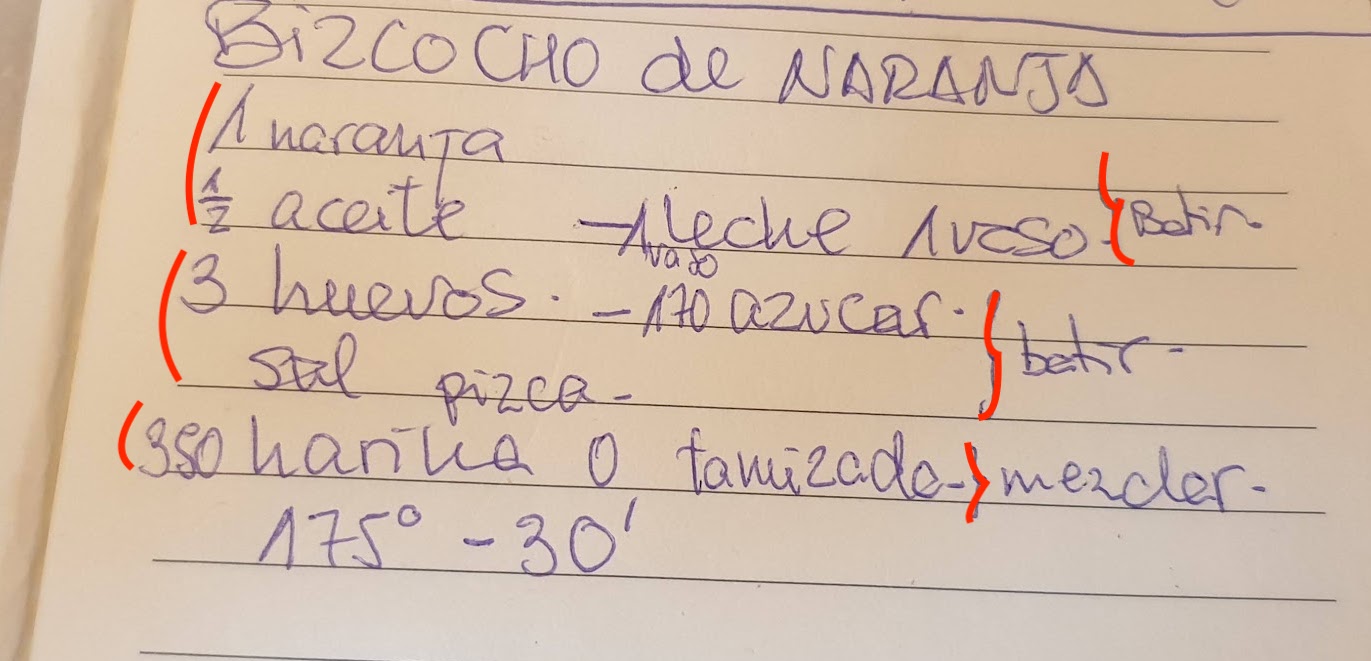 BIZCOCHO de NARANJA
1 naranja
1/2 aceite - 1 leche 1 vaso } Batir.
vaso
3 huevos. - 170 azucar. } batir-
sal pizca-
350 harina 0 tamizada- } mezclar-
175° - 30'